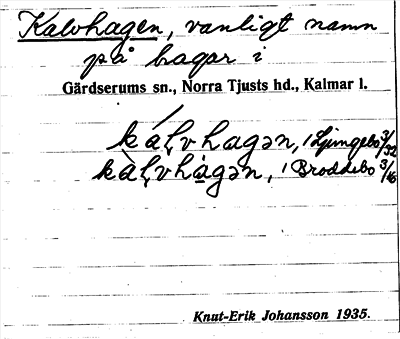 Kalvhagen, vanligt namn
på hagar i
Gärdserums sn., Norra Tjusts hd., Kalmar l.
kálvhagən, / Ljungebo 3/32
kàlvhàgən, / Broddebo 3/16
Knut-Erik Johansson 1935.